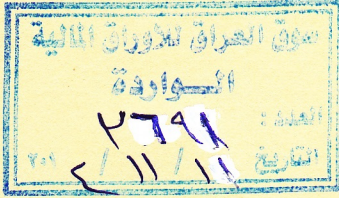 سوق العراق للاوراق المالية
الـواردة
العدد : ٣٦٩٨
التاريخ ١١ / ١١ / ٢٠١٤